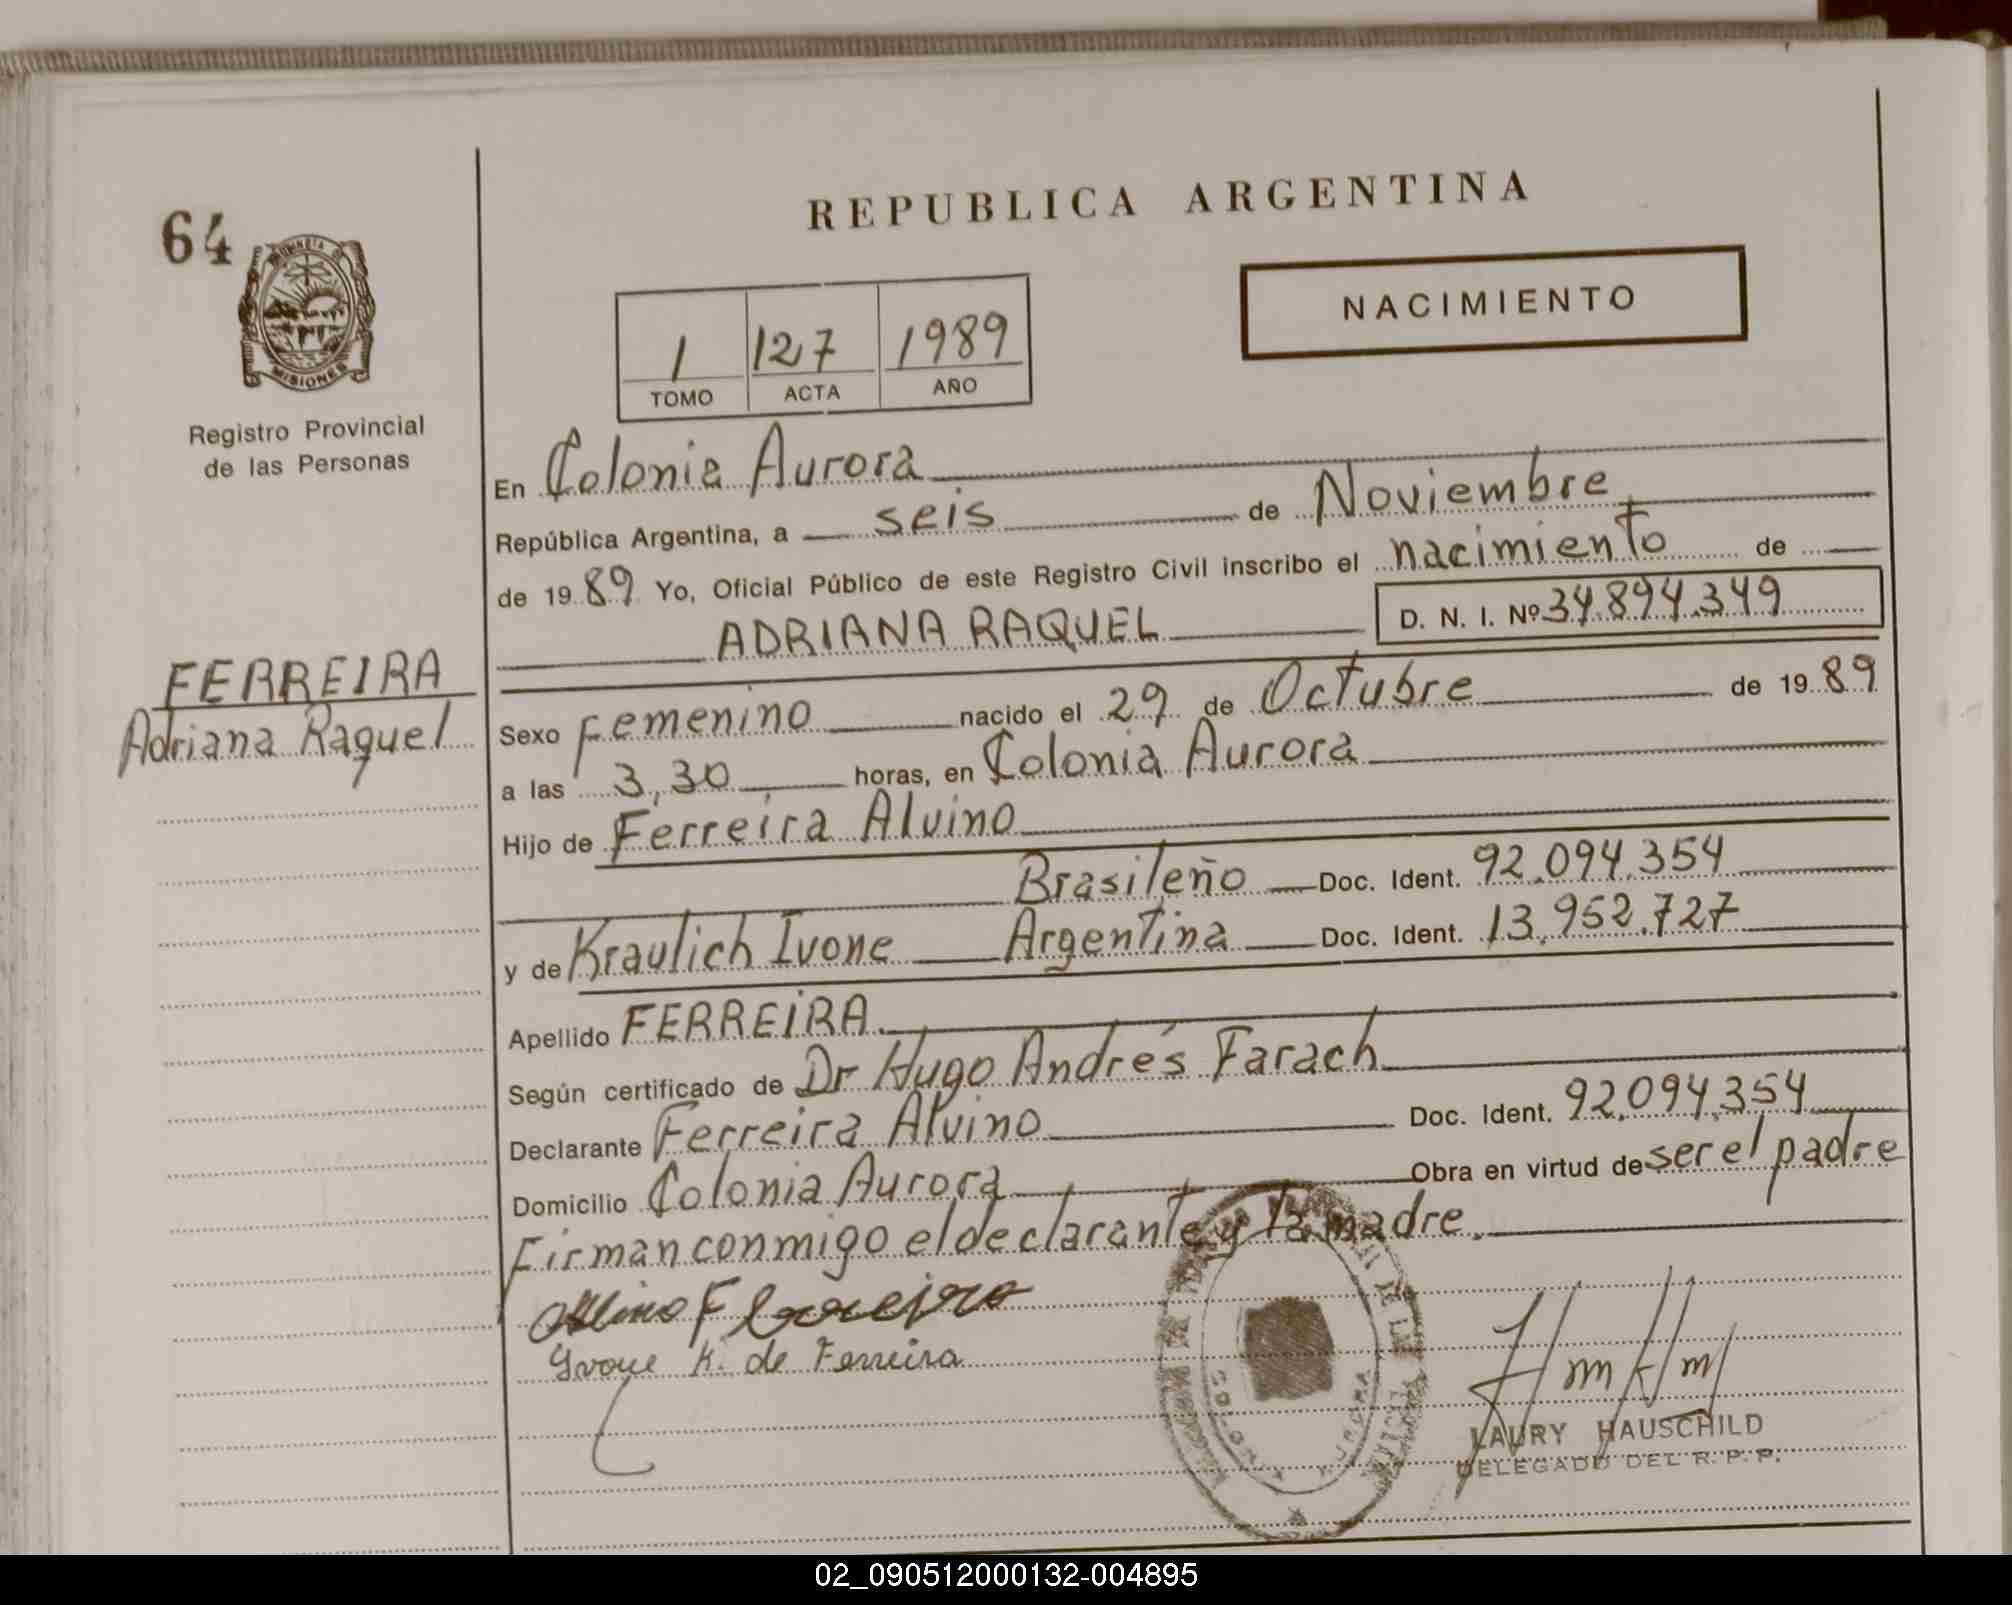 64
MISIONES
Registro Provincial
de las Personas
REPUBLICA ARGENTINA
NACIMIENTO
1 127 1989
TOMO ACTA AÑO
En Colonia Aurora
República Argentina, a seis de Noviembre
de 1989 Yo, Oficial Público de este Registro Civil inscribo el nacimiento de
ADRIANA RAQUEL D. N. I. Nº 34.894.349
FERREIRA
Adriana Raquel
Sexo Femenino nacido el 29 de Octubre de 1989
a las 3,30 horas, en Colonia Aurora
Hijo de Ferreira Alvino
Brasileño Doc. Ident. 92.094.354
y de Kraulich Ivone Argentina Doc. Ident. 13.952.727
Apellido FERREIRA
Según certificado de Dr Hugo Andrés Farach
Declarante Ferreira Alvino Doc. Ident. 92.094.354
Domicilio Colonia Aurora Obra en virtud de ser el padre
Firman conmigo el declarante y la madre.
Yvone K. de Ferreira
COLONIA AURORA
LAURY HAUSCHILD
DELEGADO DEL R. P. P.
02_090512000132-004895